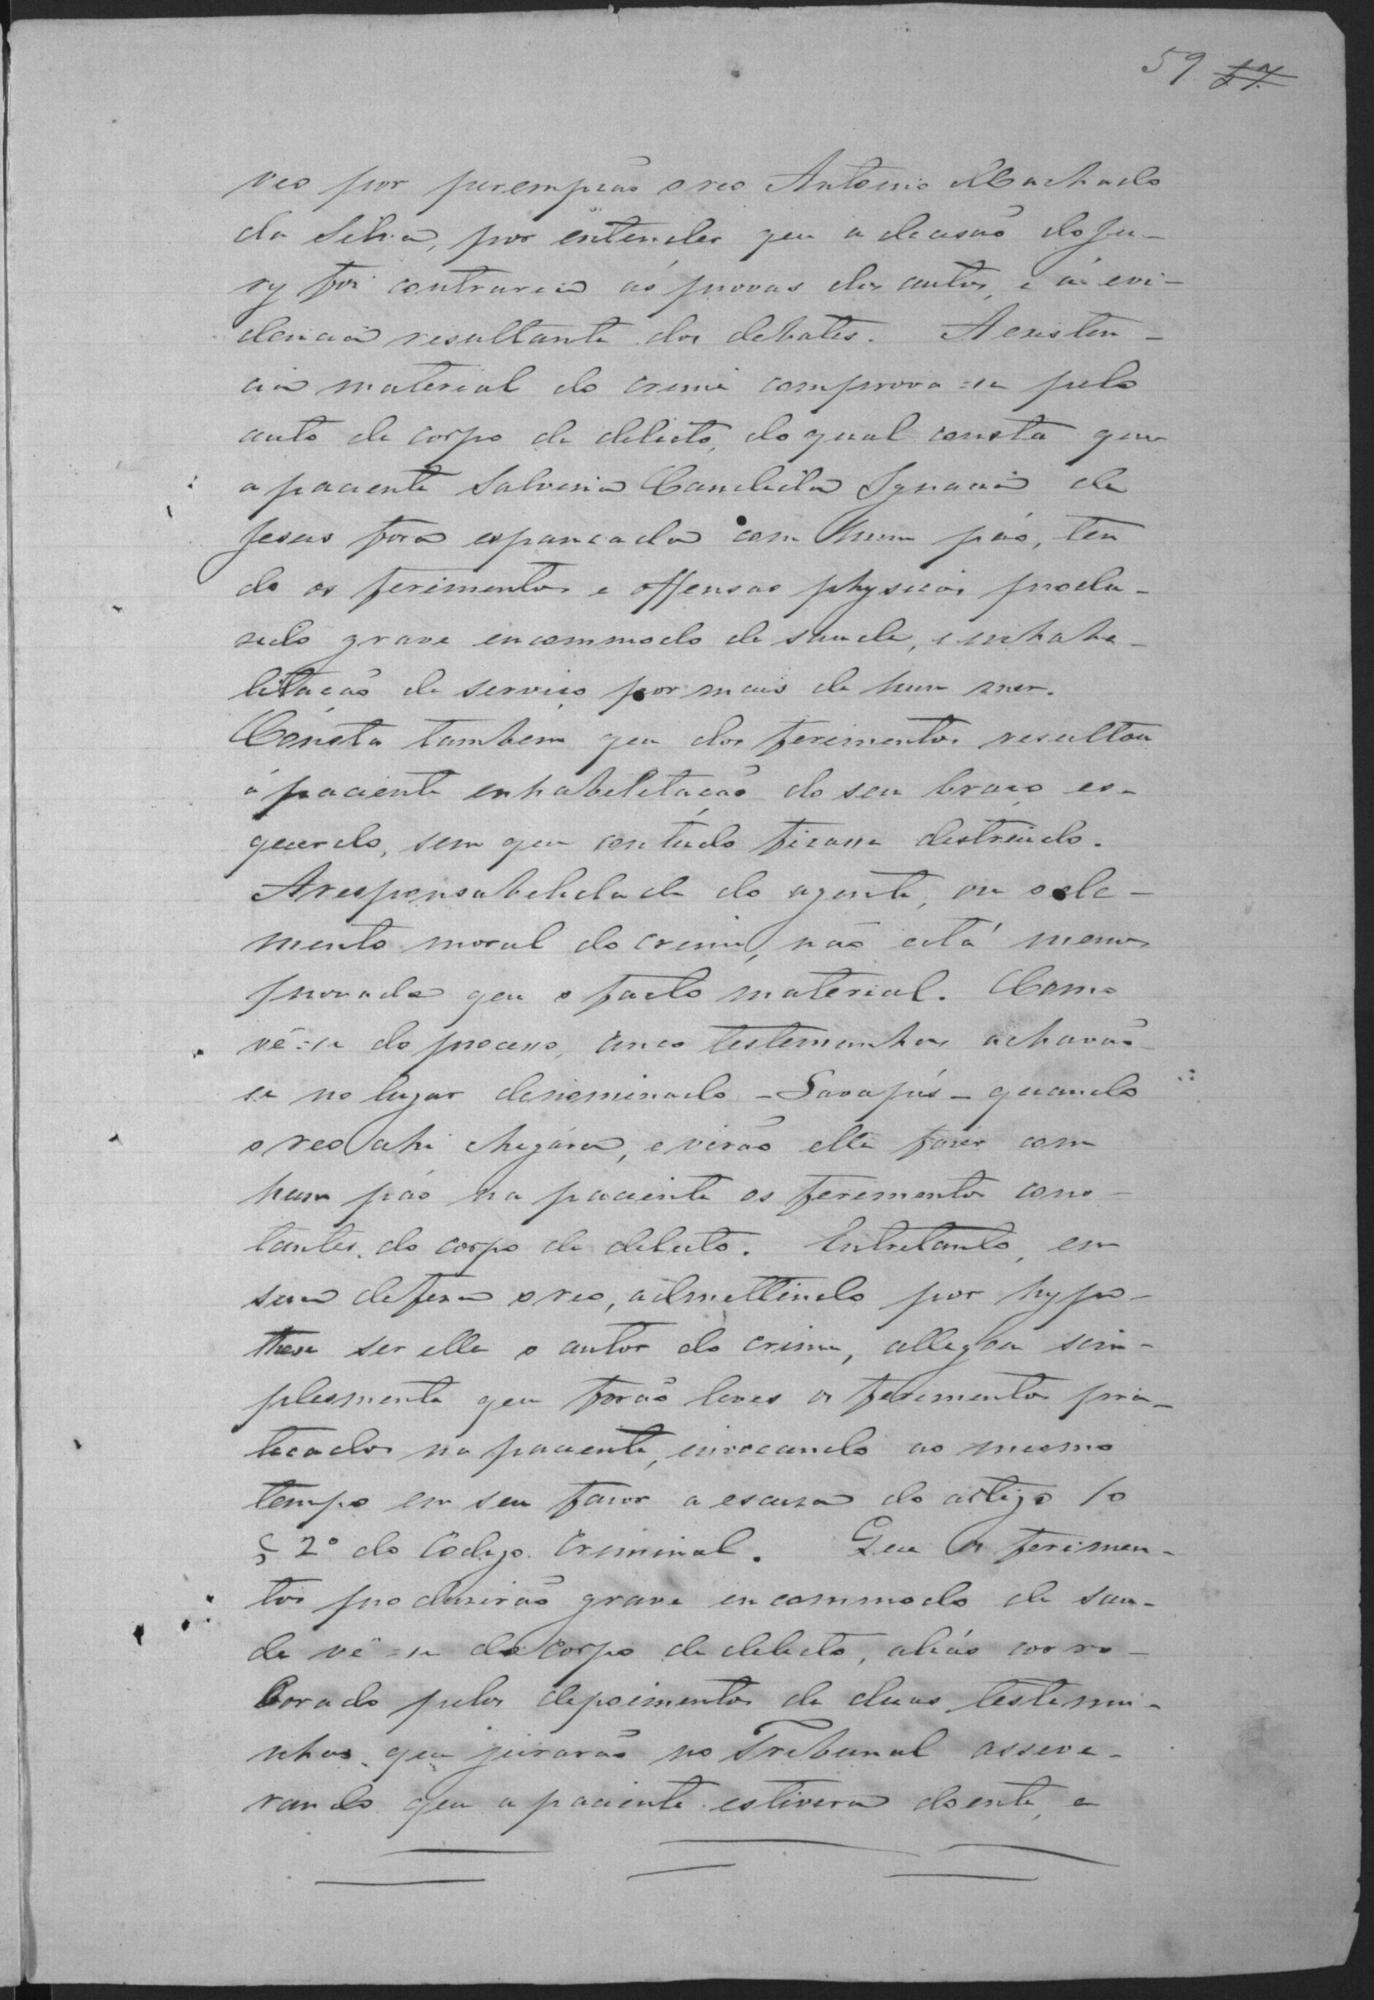 59 57
veo por perempção o reo Antonio Machado
da Silva, por entender que a decisão do Ju-
ry foi contraria ás provas dos autos, e á evi-
dencia resultante dos debates. A existen-
cia material do crime comprova-se pelo
auto de corpo de delicto, do qual consta que
a paciente Salvina Candida Ignacia de
Jesus fora espancada com hum páo, ten
do os ferimentos e offensas physicas produ-
zido grave encommodo de saude, e inhabe-
litação de serviço por mais de hum mez.
Consta tambem que dos ferimentos resultou
á paciente enhabelitação do seu braço es-
querdo, sem que contudo ficasse distruido.
A responsabelidade do agente, ou o ele-
mento moral do crime, não está menos
provada que o facto material. Como
vê-se do processo, cinco testemunhas achavão
se no lugar denominado - Lavapés - quando
o reo ahi chegára, e virão elle fazer com
hum páo na paciente os ferimentos cons-
tantes do corpo de delicto. Entretanto, em
sua defesa o reo, admettindo por hypo-
these ser elle o autor do crime, allegou sim-
plesmente que forão leves os ferimentos pra-
ticados na paciente, invocando ao mesmo
tempo em seu favor a escusa do artigo 10
§ 2º do Codigo Criminal. Que os ferimen-
tos produzirão grave encommodo de sau-
de vê-se do corpo de delicto, aliás corro-
borado pelos depoimentos de duas testemu-
nhas que jurarão no Tribunal asseve-
rando que a paciente estivera doente, e